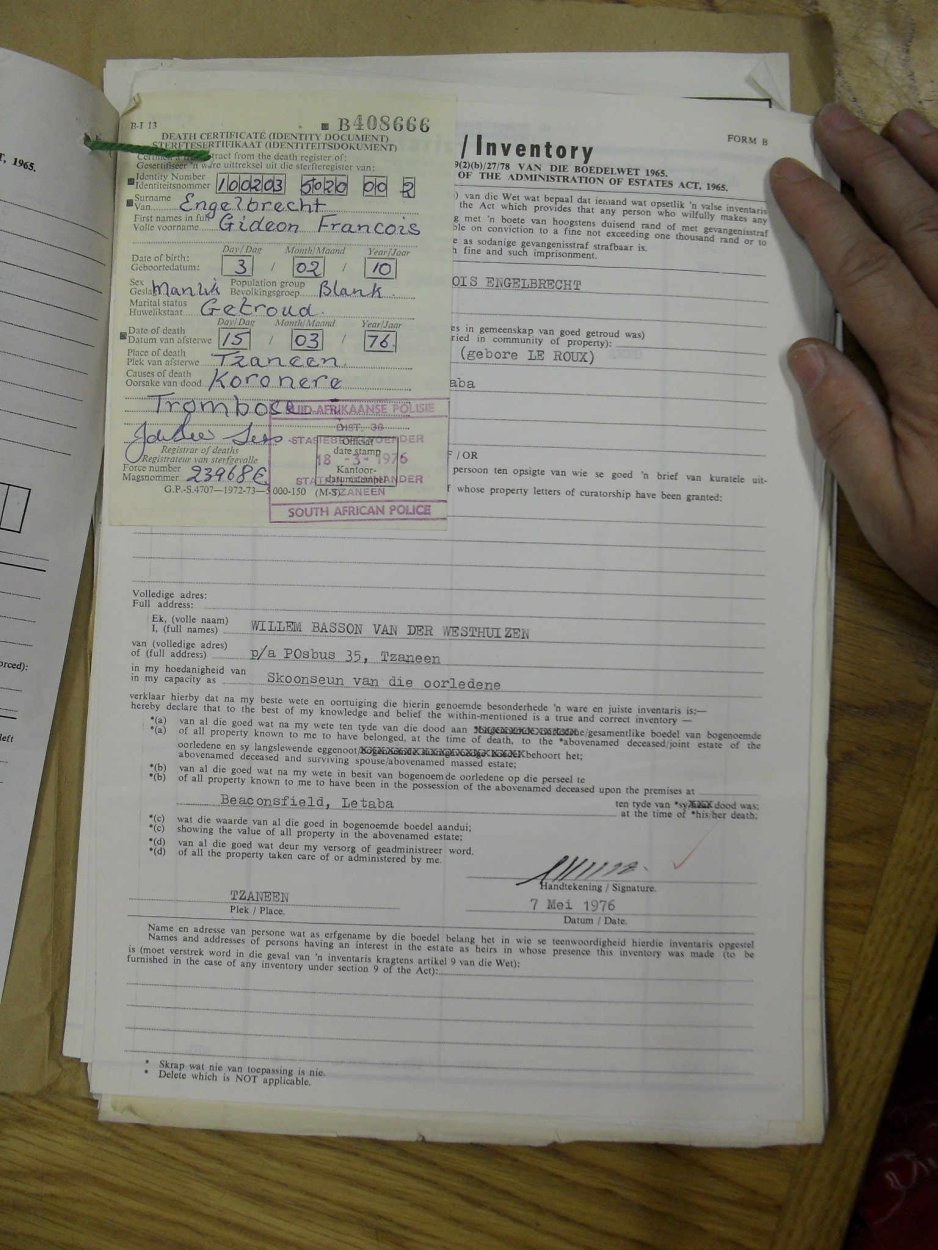 T, 1965.
orced):
left
B-J 13
B408666
DEATH CERTIFICATE (IDENTITY DOCUMENT)
STERFTESERTIFIKAAT (IDENTITEITSDOKUMENT)
Certified a true extract from the death register of:
Gesertifiseer 'n ware uittreksel uit die sterfteregister van:
Identity Number
Identiteitsnommer 100203 5020 00 2
Surname
Van Engelbrecht
First names in full
Volle voorname Gideon Francois
Day/Dag Month/Maand Year/Jaar
Date of birth:
Geboortedatum: 3 / 02 / 10
Sex Population group
Geslag Manlik Bevolkingsgroep Blank
Marital status
Huwelikstaat Getroud
Day/Dag Month/Maand Year/Jaar
Date of death
Datum van afsterwe 15 / 03 / 76
Place of death
Plek van afsterwe Tzaneen
Causes of death
Oorsake van dood Koronere
Trombose
Registrar of deaths
Registrateur van sterfgevalle
Force number
Magsnommer 23968E
G.P.-S.4707—1972-73—5 000-150 (M-S)
SUID-AFRIKAANSE POLISIE
DIST. 36
Official
date stamp
18 -3- 1976
Kantoor-
datumstempel
TZANEEN
SOUTH AFRICAN POLICE
FORM B
/ Inventory
9(2)(b)/27/78 VAN DIE BOEDELWET 1965.
OF THE ADMINISTRATION OF ESTATES ACT, 1965.
) van die Wet wat bepaal dat iemand wat opsetlik 'n valse inventaris
the Act which provides that any person who wilfully makes any
g met 'n boete van hoogstens duisend rand of met gevangenisstraf
ble on conviction to a fine not exceeding one thousand rand or to
e as sodanige gevangenisstraf strafbaar is.
h fine and such imprisonment.
OIS ENGELBRECHT
es in gemeenskap van goed getroud was)
ried in community of property):
(gebore LE ROUX)
aba
F / OR
persoon ten opsigte van wie se goed 'n brief van kuratele uit-
f whose property letters of curatorship have been granted:
Volledige adres:
Full address:
Ek, (volle naam)
I, (full names) WILLEM BASSON VAN DER WESTHUIZEN
van (volledige adres)
of (full address) p/a POsbus 35, Tzaneen
in my hoedanigheid van
in my capacity as Skoonseun van die oorledene
verklaar hierby dat na my beste wete en oortuiging die hierin genoemde besonderhede 'n ware en juiste inventaris is:—
hereby declare that to the best of my knowledge and belief the within-mentioned is a true and correct inventory —
*(a) van al die goed wat na my wete ten tyde van die dood aan /gesamentlike boedel van bogenoemde
*(a) of all property known to me to have belonged, at the time of death, to the *abovenamed deceased/joint estate of the
oorledene en sy langslewende eggenoot/ behoort het;
abovenamed deceased and surviving spouse/abovenamed massed estate;
*(b) van al die goed wat na my wete in besit van bogenoemde oorledene op die perseel te
*(b) of all property known to me to have been in the possession of the abovenamed deceased upon the premises at
Beaconsfield, Letaba ten tyde van *sy dood was;
at the time of *his/her death;
*(c) wat die waarde van al die goed in bogenoemde boedel aandui;
*(c) showing the value of all property in the abovenamed estate;
*(d) van al die goed wat deur my versorg of geadministreer word.
*(d) of all the property taken care of or administered by me.
Handtekening / Signature.
TZANEEN
Plek / Place.
7 Mei 1976
Datum / Date.
Name en adresse van persone wat as erfgename by die boedel belang het in wie se teenwoordigheid hierdie inventaris opgestel
Names and addresses of persons having an interest in the estate as heirs in whose presence this inventory was made (to be
is (moet verstrek word in die geval van 'n inventaris kragtens artikel 9 van die Wet):
furnished in the case of any inventory under section 9 of the Act):
* Skrap wat nie van toepassing is nie.
* Delete which is NOT applicable.